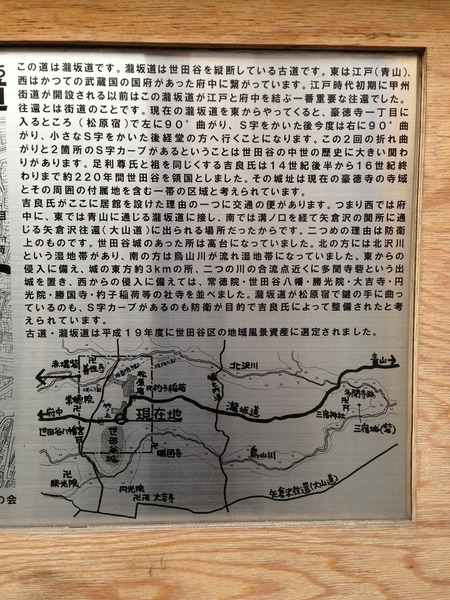 この道は瀧坂道です。瀧坂道は世田谷を縦断している古道です。東は江戸(青山)、
西はかつての武蔵国の国府があった府中に繫がっています。江戸時代初期に甲州
街道が開設される以前はこの瀧坂道が江戸と府中を結ぶ一番重要な往還でした。
往還とは街道のことです。現在の瀧坂道を東からやってくると、豪徳寺一丁目に
入るところ(松原宿)で左に90°曲がり、S字をかいた後今度は右に90°曲
がり、小さなS字をかいた後経堂の方へ行くことになります。この2回の折れ曲
がりと2箇所のS字カーブがあるということは世田谷の中世の歴史に大きい関わ
りがあります。足利尊氏と祖を同じくする吉良氏は14世紀後半から16世紀終
わりまで約220年間世田谷を領国としました。その城址は現在の豪徳寺の寺域
とその周囲の付属地を含む一帯の区域と考えられています。
吉良氏がここに居館を設けた理由の一つに交通の便があります。つまり西では府
中に、東では青山に通じる瀧坂道に接し、南では溝ノ口を経て矢倉沢の関所に通
じる矢倉沢往還(大山道)に出られる場所だったからです。二つめの理由は防衛
上のものです。世田谷城のあった所は高台になっていました。北の方には北沢川
という湿地帯があり、南の方は烏山川が流れ湿地帯になっていました。東からの
侵入に備え、城の東方約3kmの所、二つの川の合流点近くに多聞寺砦という出
城を置き、西からの侵入に備えては、常徳院・世田谷八幡・勝光院・大吉寺・円
光院・勝国寺・杓子稲荷等の社寺を並べました。瀧坂道が松原宿で鍵の手に曲っ
ているのも、S字カーブがあるのも防衛が目的で吉良氏によって整備されたと考
えられています。
古道・瀧坂道は平成19年度に世田谷区の地域風景資産に選定されました。
赤堤砦
善性寺
松原宿
北沢川
青山
常徳院
杓子稲荷
多聞寺砦
府中
現在地
瀧坂道
三宿神社
世田谷八幡宮
世田谷城
三宿城(砦)
勝国寺
烏山川
勝光院
円光院
大吉寺
矢倉沢往還(大山道)
の会
道